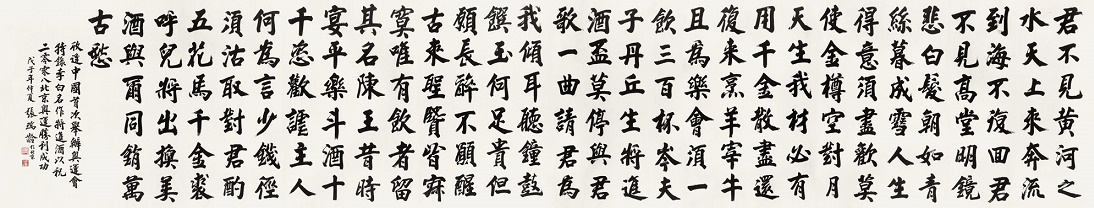 君不見黃河之
水天上來奔流
到海不復回君
不見高堂明鏡
悲白髮朝如青
絲暮成雪人生
得意須盡歡莫
使金樽空對月
天生我材必有
用千金散盡還
復來烹羊宰牛
且為樂會須一
飲三百杯岑夫
子丹丘生將進
酒盃莫停與君
歌一曲請君為
我傾耳聽鐘鼓
饌玉何足貴但
願長醉不願醒
古來聖賢皆寂
寞唯有飲者留
其名陳王昔時
宴平樂斗酒十
千恣歡謔主人
何為言少錢徑
須沽取對君酌
五花馬千金裘
呼兒將出換美
酒與爾同銷萬
古愁
欣逢中國首次舉辦奧運會
特錄李白名作將進酒以祝
二零零八北京奧運勝利成功
戊子年仲夏 張瑞齡